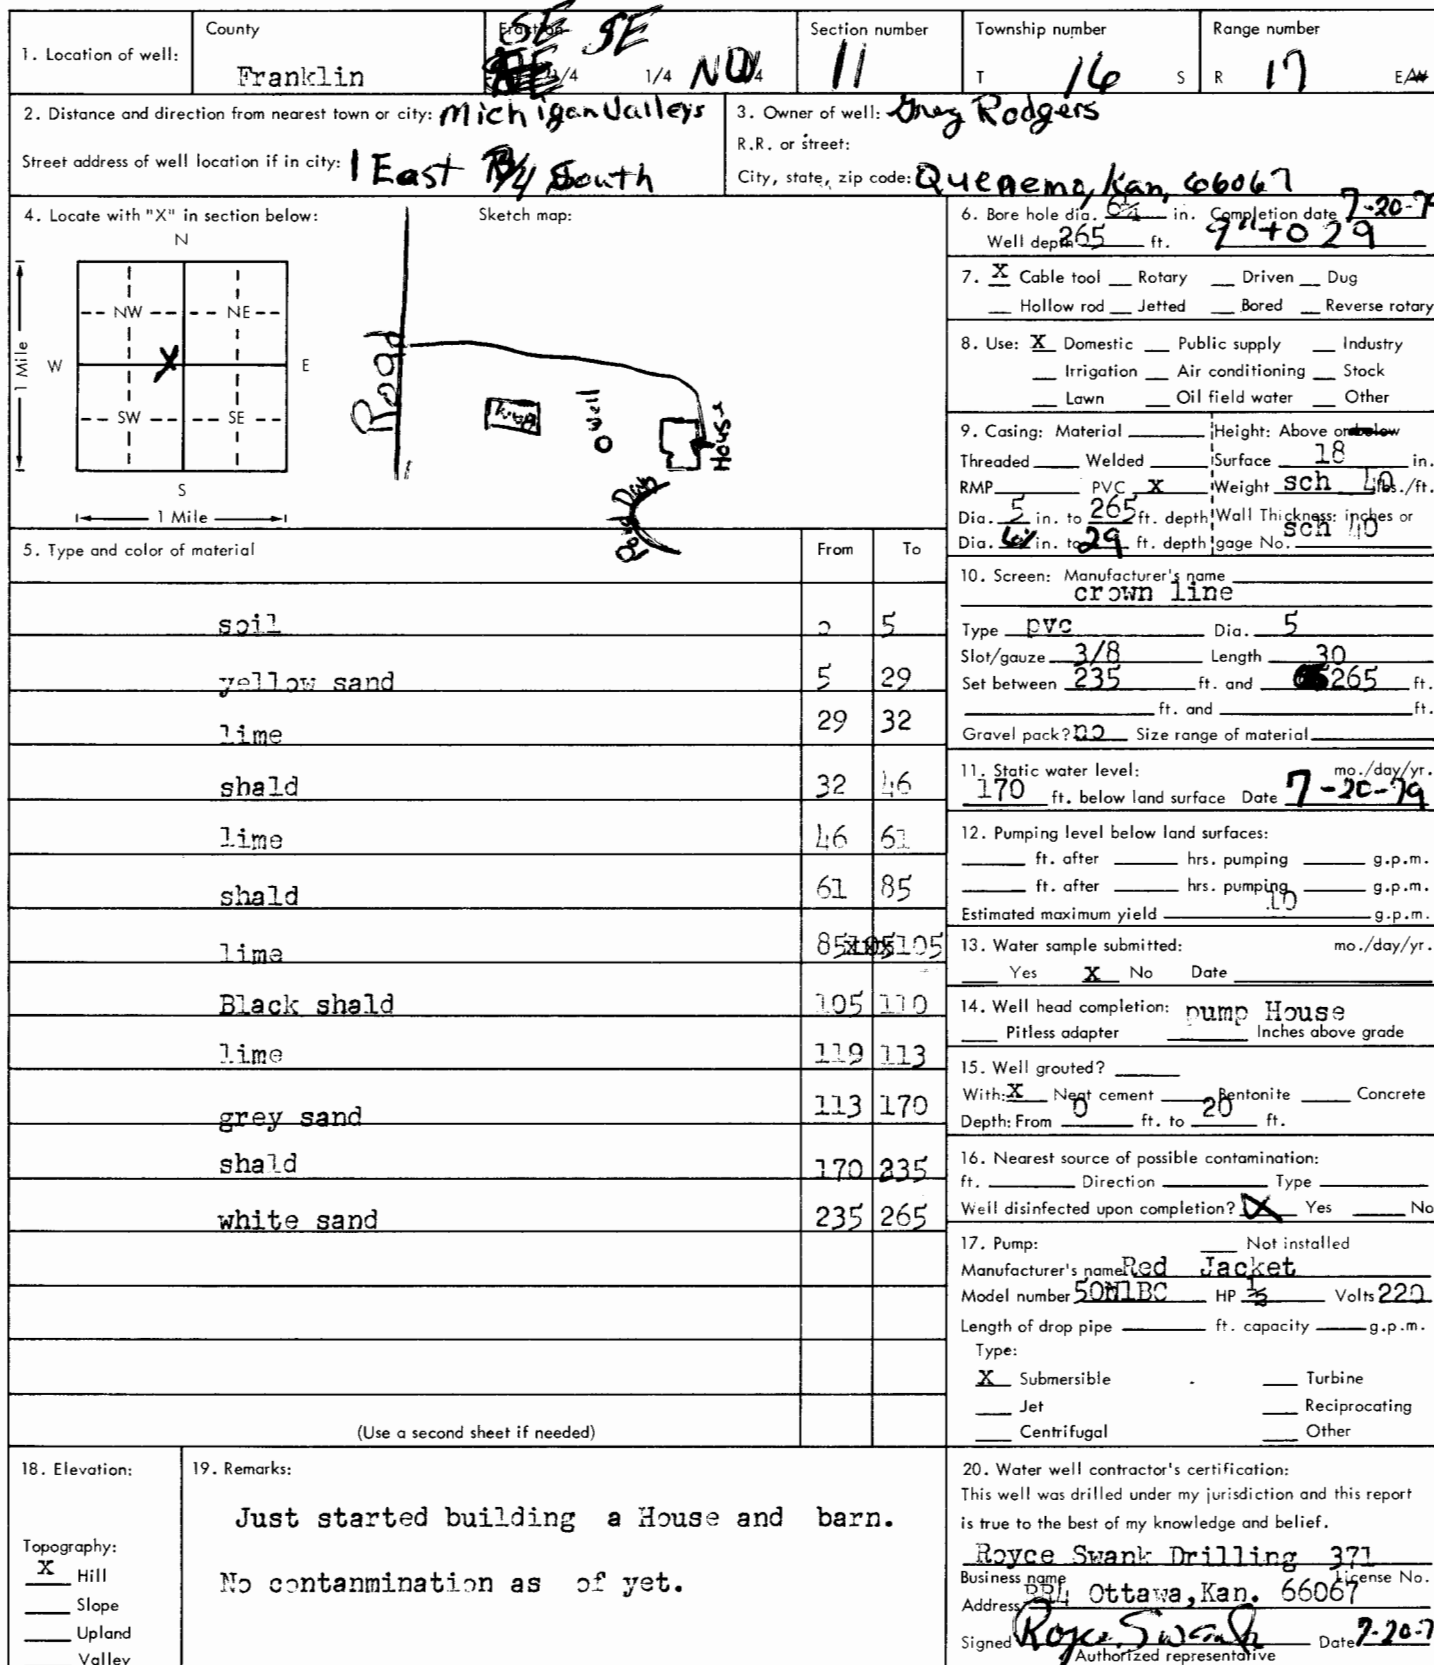 1. Location of well:
County
Franklin
Fraction
SE SE
1/4 1/4 NW 1/4
Section number
11
Township number
T 16 S
Range number
R 17 E/W
2. Distance and direction from nearest town or city: Michigan Valleys
Street address of well location if in city: 1 East 3/4 South
3. Owner of well: Greg Rodgers
R.R. or street:
City, state, zip code: Quenemo, Kan, 66067
4. Locate with "X" in section below:
N
NW NE
W X E
SW SE
S
1 Mile
1 Mile
Sketch map:
Road
Barn
Well
House
Pond Dam
5. Type and color of material From To
soil 0 5
yellow sand 5 29
lime 29 32
shald 32 46
lime 46 61
shald 61 85
lime 85 105
Black shald 105 110
lime 119 113
grey sand 113 170
shald 170 235
white sand 235 265
(Use a second sheet if needed)
6. Bore hole dia. 6¼ in. Completion date 7-20-79
Well depth 265 ft. 9" to 29
7. X Cable tool Rotary Driven Dug
Hollow rod Jetted Bored Reverse rotary
8. Use: X Domestic Public supply Industry
Irrigation Air conditioning Stock
Lawn Oil field water Other
9. Casing: Material Height: Above or below
Threaded Welded Surface 18 in.
RMP PVC X Weight sch 40 lbs./ft.
Dia. 5 in. to 265 ft. depth Wall Thickness: inches or
Dia. 6¼ in. to 29 ft. depth gage No. sch 40
10. Screen: Manufacturer's name
crown line
Type pvc Dia. 5
Slot/gauze 3/8 Length 30
Set between 235 ft. and 265 ft.
ft. and ft.
Gravel pack? no Size range of material
11. Static water level: mo./day/yr.
170 ft. below land surface Date 7-20-79
12. Pumping level below land surfaces:
ft. after hrs. pumping g.p.m.
ft. after hrs. pumping g.p.m.
Estimated maximum yield 10 g.p.m.
13. Water sample submitted: mo./day/yr.
Yes X No Date
14. Well head completion: pump House
Pitless adapter Inches above grade
15. Well grouted?
With: X Neat cement Bentonite Concrete
Depth: From 0 ft. to 20 ft.
16. Nearest source of possible contamination:
ft. Direction Type
Well disinfected upon completion? X Yes No
17. Pump: Not installed
Manufacturer's name Red Jacket
Model number 50N1BC HP ½ Volts 220
Length of drop pipe ft. capacity g.p.m.
Type:
X Submersible Turbine
Jet Reciprocating
Centrifugal Other
18. Elevation:
Topography:
X Hill
Slope
Upland
Valley
19. Remarks:
Just started building a House and barn.
No contanmination as of yet.
20. Water well contractor's certification:
This well was drilled under my jurisdiction and this report
is true to the best of my knowledge and belief.
Royce Swank Drilling 371
Business name License No.
Address RR4 Ottawa, Kan. 66067
Signed Royce Swank Date 7-20-7
Authorized representative